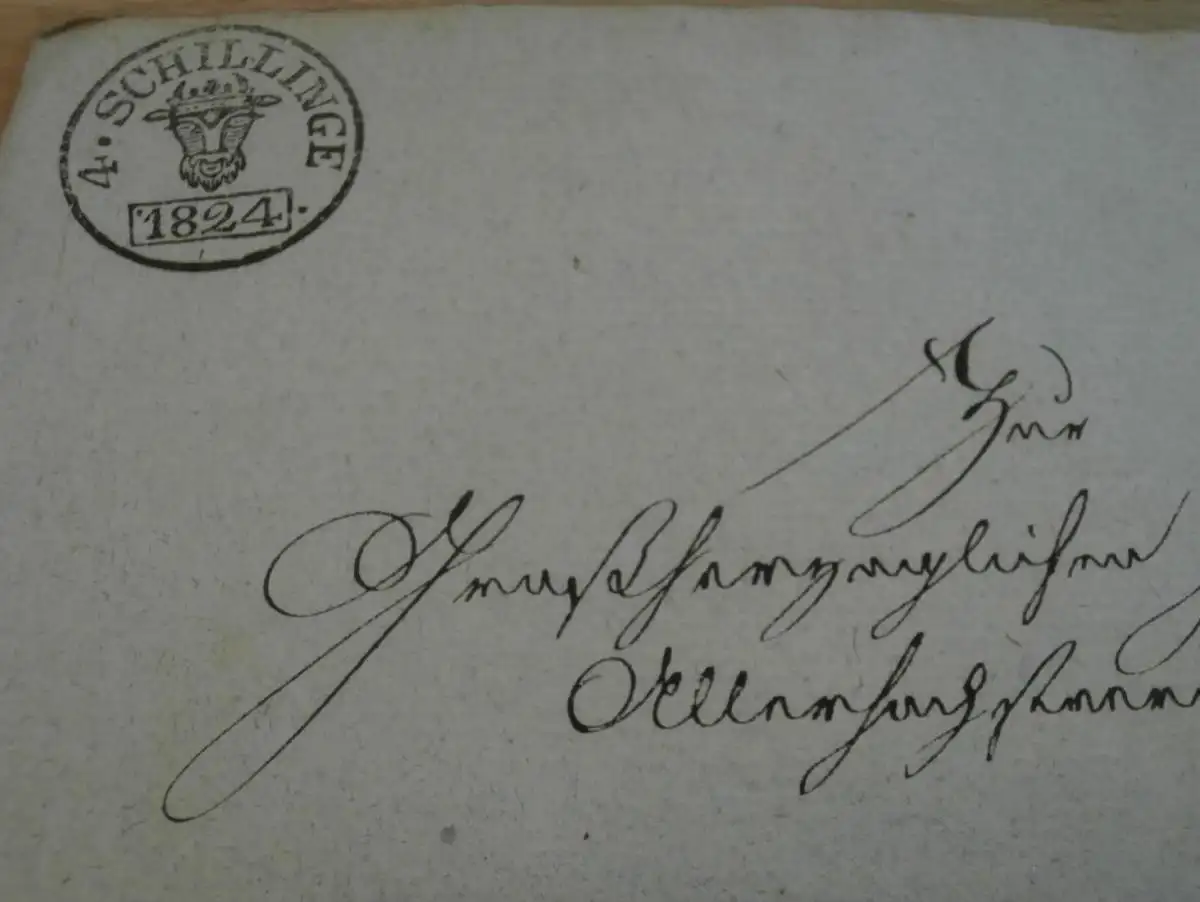 4 • SCHILLINGE
1824
Zur
Großherzoglichen
Allerhöchstver